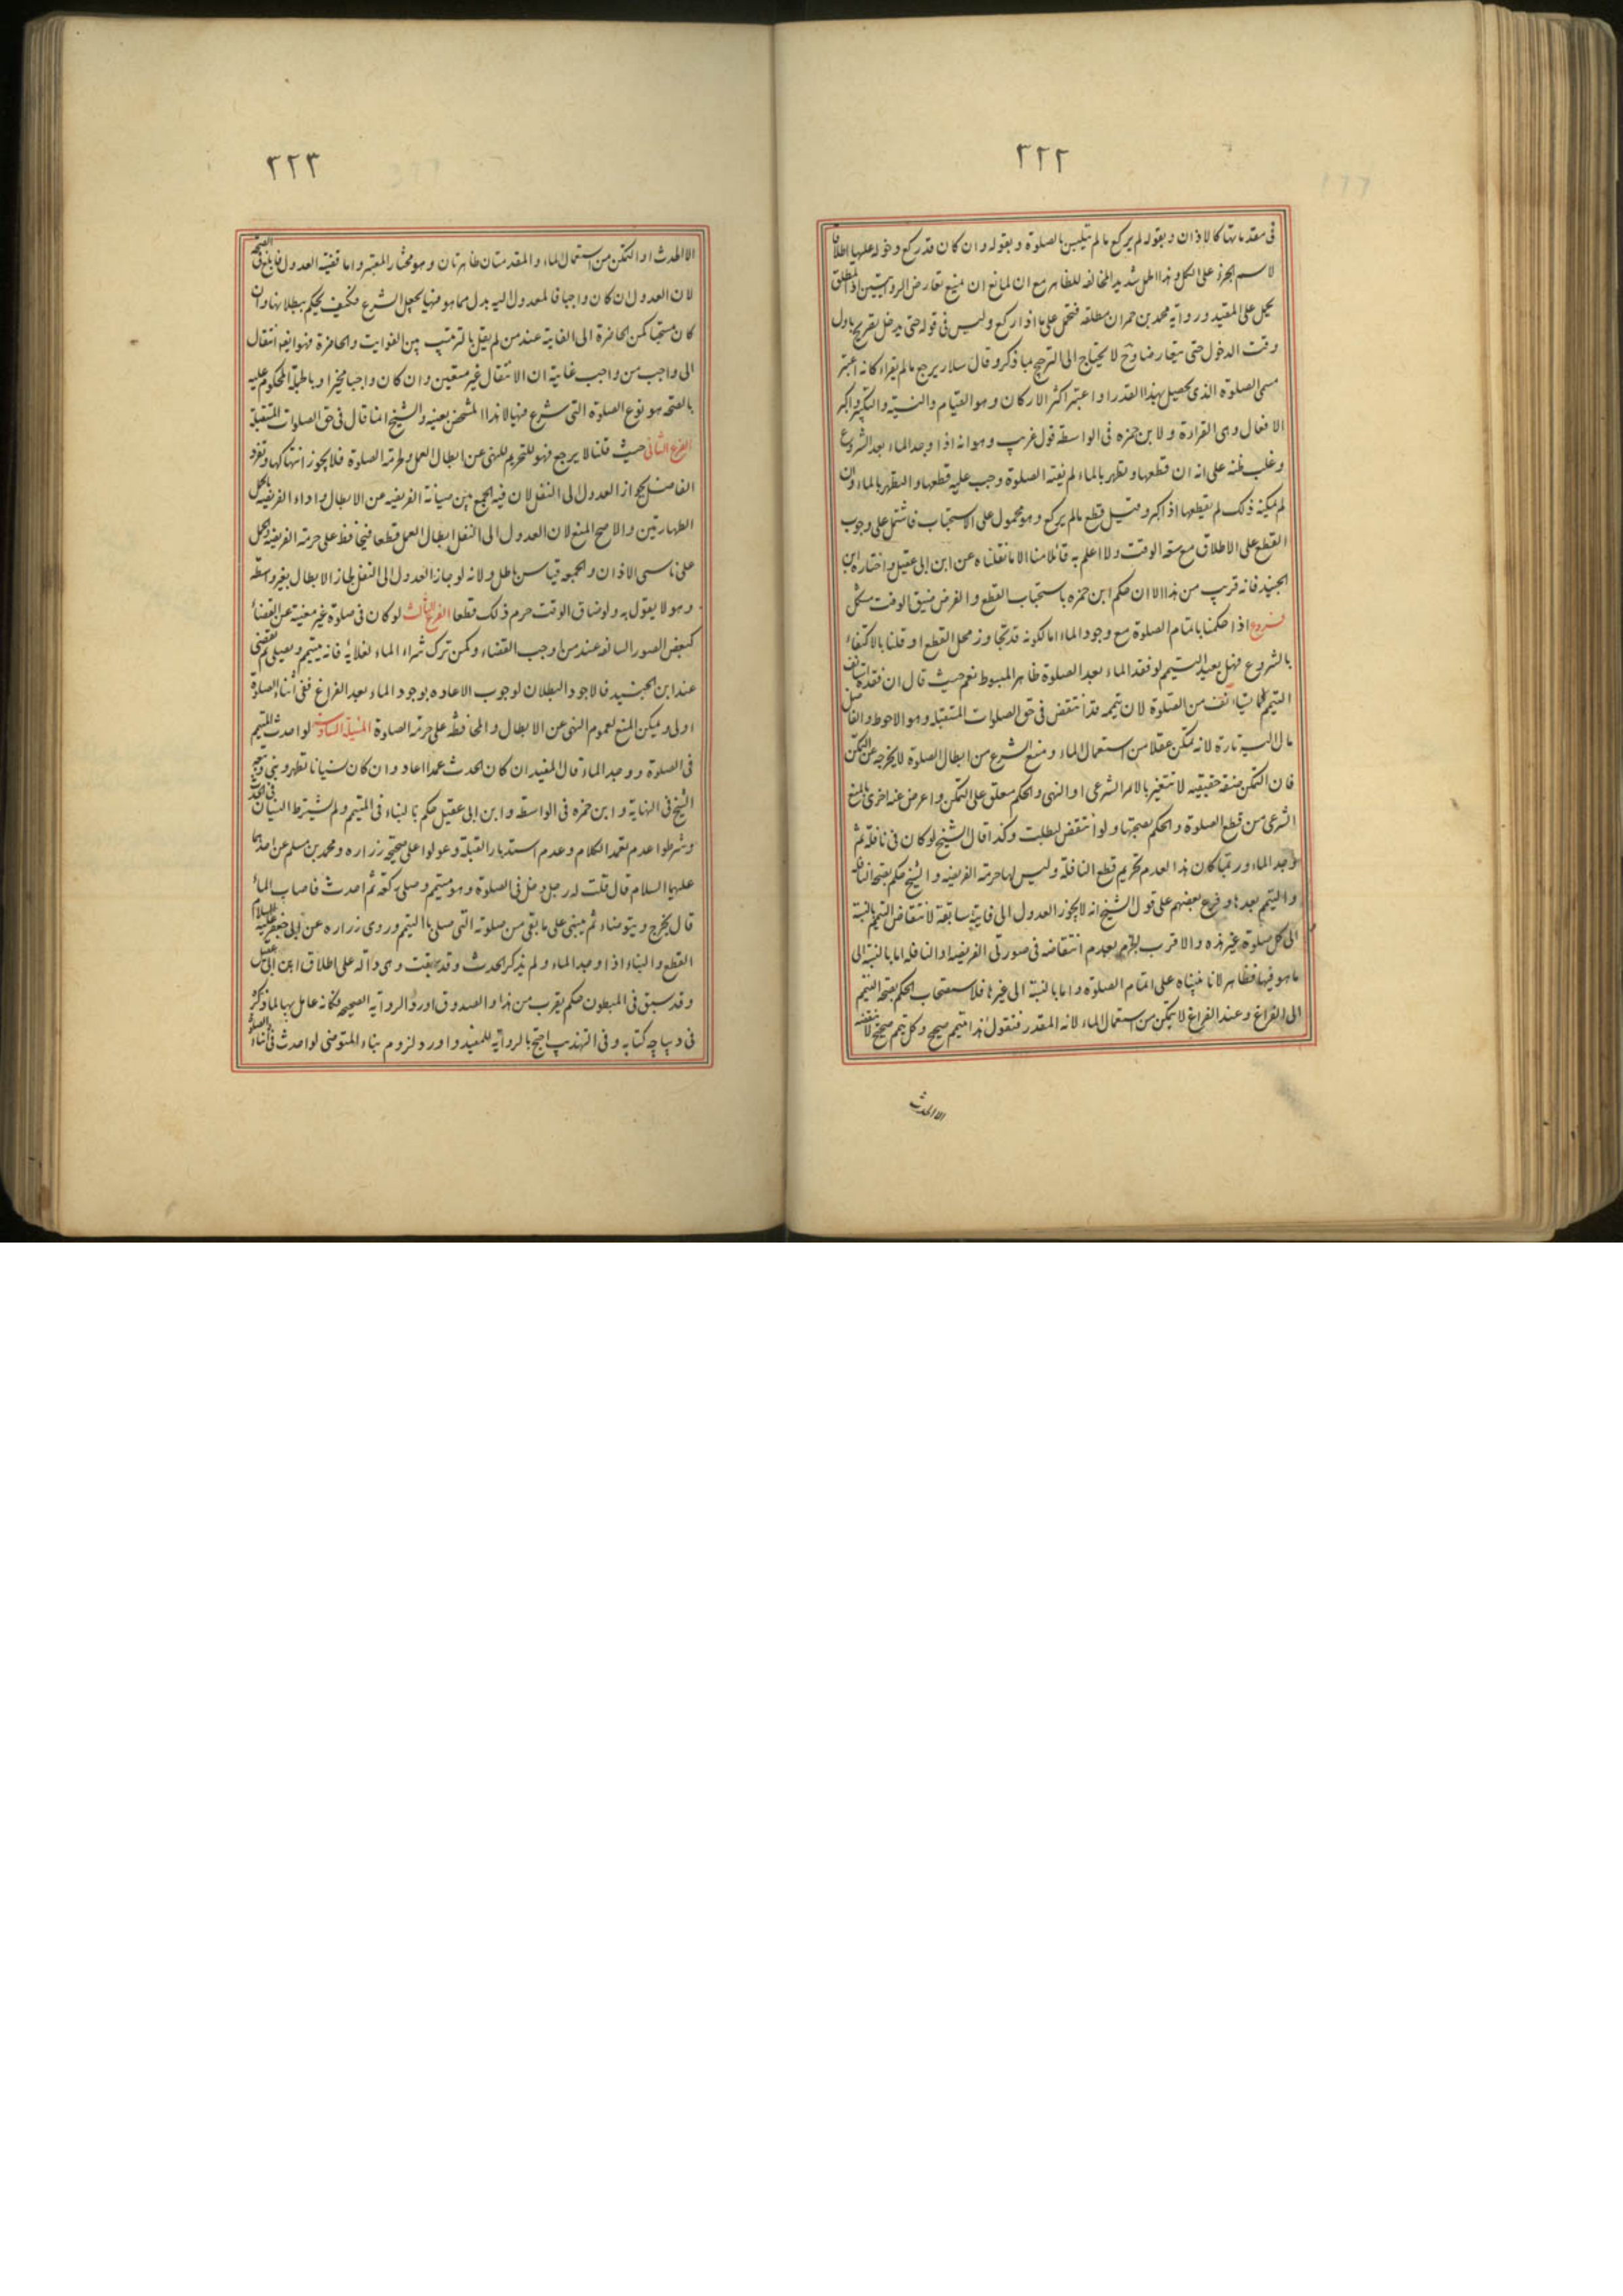 ٢٢٢
فى مقدماتها كالاذان و بقوله لم يركع ما لم يتلبس بالصلوة و بقوله و ان كان قد ركع دخوله عليها اطلاقا
لاسم الجزء على الكل و هذا الحمل شديد المخالفه للظاهر مع ان لمانع ان يمنع تعارض الروايتين اذ المطلق
يحمل على المقيد و رواية محمد بن حمران مطلقه فتحمل على ما اذا ركع و ليس فى قوله حتى يدخل تصريح باول
وقت الدخول حتى يتعارضا و ح لا يحتاج الى الترجيح بما ذكر و قال سلار يرجع ما لم يقراء كانه اعتبر
مسمى الصلوة الذى يحصل بهذا القدر او اعتبر اكثر الاركان و هو القيام و النية و التكبير و اكبر
الافعال و هى القراءة و لابن حمزه فى الواسطه قول غريب و هو انه اذا وجد الماء بعد الشروع
و غلب ظنه على انه ان قطعها و تطهر بالماء لم يفته الصلوة وجب عليه قطعها و التطهر بالماء و ان
لم يمكنه ذلك لم يقطعها اذا كبر و قيل قطع ما لم يركع و هو محمول على الاستحباب فاشتمل على وجوب
القطع على الاطلاق مع سعة الوقت و لا اعلم به قائلا منا الا ما نقلناه عن ابن ابى عقيل و اختاره ابن
الجنيد فانه قريب من هذا الا ان حكم ابن حمزه باستحباب القطع و الفرض ضيق الوقت مشكل
فروع اذا حكمنا باتمام الصلوة مع وجود الماء اما لكونه قد تجاوز محل القطع او قلنا بالاكتفاء
بالشروع فهل يعيد التيمم لو فقد الماء بعد الصلوة ظاهر المبسوط نعم حيث قال ان فقده استانف
التيمم لما يستانف من الصلوة لان تيممه قد انتقض فى حق الصلوات المستقبله و هو الاحوط و الفاضل
مال اليه تارة لانه تمكن عقلا من استعمال الماء و منع الشرع من ابطال الصلوة لا يخرجه عن التمكن
فان التمكن صفة حقيقيه لا تتغير بالامر الشرعى او النهى و الحكم معلق على التمكن و اعرض عنه اخرى بالمنع
الشرعى من قطع الصلوة و الحكم بصحتها و لو انتقض لبطلت و كذا قال الشيخ لو كان فى نافلة ثم
وجد الماء و ربما كان هذا لعدم تحريم قطع النافلة و ليس لها حرمة الفريضه و الشيخ حكم بصحة النافله
و التيمم بعدها و فرع بعضهم على قول الشيخ انه لا يجوز العدول الى فايتة سابقة لانتقاض التيمم بالنسبة
الى كل صلوة غير هذه و الاقرب الجزم بعدم انتقاضه فى صورتى الفريضه و النافله اما بالنسبة الى
ما هو فيها فظاهر لانا بنيناه على اتمام الصلوة و اما بالنسبة الى غيرها فلاستصحاب الحكم بصحة التيمم
الى الفراغ و عند الفراغ لا يتمكن من استعمال الماء لانه المقدر فنقول هذا تيمم صحيح و كل تيمم صحيح لا ينقضه
الا الحدث
٢٢٣
الا الحدث او التمكن من استعمال الماء و المقدمتان ظاهرتان و هو مختار المعتبر و اما قضية العدول فابلغ فى الصحة
لان العدول ان كان واجبا فالمعدول اليه بدل مما هو فيها بجعل الشرع فكيف يحكم ببطلانها و ان
كان مستحبا كمن الحاضرة الى الفايتة عند من لم يقل بالترتيب بين الفوايت و الحاضرة فهو ايضا انتقال
الى واجب من واجب غايته ان الانتقال غير متعين و ان كان واجبا مخيرا و باطبلة المحكوم عليه
بالصحه هو نوع الصلوة التى شرع فيها لا هذا المشخص بعينه و الشيخ انما قال فى حق الصلوات المستقبلة
الفرع الثانى حيث قلنا لا يرجع فهو للتحريم للنهى عن ابطال العمل و لحرمة الصلوة فلا يجوز انتهاكها و تفرد
الفاضل بجواز العدول الى النفل لان فيه الجمع بين صيانة الفريضه عن الابطال و اداء الفريضه باكمل
الطهارتين و الاصح المنع لان العدول الى النفل ابطال للعمل قطعا فيحافظ على حرمة الفريضه و الحمل
على ناسى الاذان و الجمعه قياس باطل و لانه لو جاز العدول الى النفل لجاز الابطال بغير واسطه
و هو لا يقول به و لو ضاق الوقت حرم ذلك قطعا الفرع الثالث لو كان فى صلوة غير مغنية عن القضاء
كبعض الصور السالفه عند من اوجب القضاء و كمن ترك شراء الماء لغلائه فانه يتيمم و يصلى ثم يقضى
عند ابن الجنيد فالاجود البطلان لوجوب الاعاده بوجود الماء بعد الفراغ ففى اثناء الصلوة
اولى و يمكن المنع لعموم النهى عن الابطال و المحافظة على حرمة الصلوة المسئلة السادسة لو احدث المتيمم
فى الصلوة و وجد الماء قال المفيد ان كان الحدث عمدا اعاد و ان كان نسيانا تطهر و بنى و تبعه
الشيخ فى النهاية و ابن حمزه فى الواسطه و ابن ابى عقيل حكم بالبناء فى المتيمم و لم يشترط النسيان فى الحدث
و شرطوا عدم تعمد الكلام و عدم استدبار القبلة و عولوا على صحيحه زراره و محمد بن مسلم عن احدهما
عليهما السلام قال قلت له رجل دخل فى الصلوة و هو متيمم و صلى ركعة ثم احدث فاصاب الماء
قال يخرج و يتوضاء ثم يبنى على ما بقى من صلوته التى صلى بالتيمم و روى زراره عن ابى جعفر عليه السلام
القطع و البناء اذا وجد الماء و لم يذكر الحدث و قد سبقت و هى دالة على اطلاق ابن ابى عقيل
و قد سبق فى المبطون حكم يقرب من هذا و الصدوق اورد الرواية الصحيحه فكانه عامل بها لما ذكر
فى ديباچه كتابه و فى التهذيب احتج بالرواية للمفيد و اورد لزوم بناء المتوضى لو احدث فى اثناء الصلوة